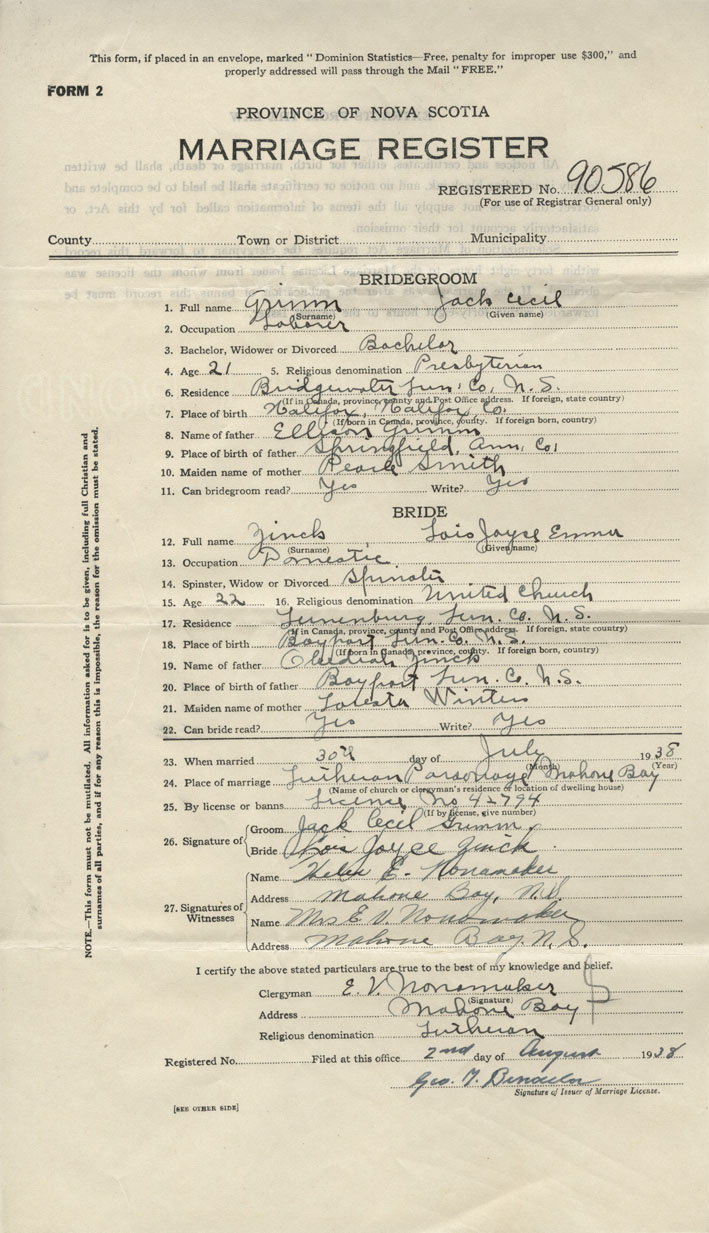 This form, if placed in an envelope, marked "Dominion Statistics—Free, penalty for improper use $300," and
properly addressed will pass through the Mail "FREE."
FORM 2
PROVINCE OF NOVA SCOTIA
MARRIAGE REGISTER
REGISTERED No. 90586
(For use of Registrar General only)
County Town or District Municipality
BRIDEGROOM
1. Full name Grimm Jack Cecil
(Surname) (Given name)
2. Occupation Laborer
3. Bachelor, Widower or Divorced Bachelor
4. Age 21 5. Religious denomination Presbyterian
6. Residence Bridgewater Lun. Co. N. S.
(If in Canada, province, county and Post Office address. If foreign, state country)
7. Place of birth Halifax, Halifax Co.
(If born in Canada, province, county. If foreign born, country)
8. Name of father Ellison Grimm
9. Place of birth of father Springfield, Ann. Co.
10. Maiden name of mother Pearle Smith
11. Can bridegroom read? Yes Write? Yes
BRIDE
12. Full name Zinck Lois Joyce Emmer
(Surname) (Given name)
13. Occupation Domestic
14. Spinster, Widow or Divorced Spinster
15. Age 22 16. Religious denomination United Church
17. Residence Lunenburg, Lun. Co. N. S.
(If in Canada, province, county and Post Office address. If foreign, state country)
18. Place of birth Bayport Lun. Co. N. S.
(If born in Canada, province, county. If foreign born, country)
19. Name of father Obediah Zinck
20. Place of birth of father Bayport Lun. Co. N.S.
21. Maiden name of mother Winters
22. Can bride read? Yes Write? Yes
23. When married 30th day of July 1938
(Month) (Year)
24. Place of marriage Lutheran Parsonage Mahone Bay
(Name of church or clergyman's residence or location of dwelling house)
25. By license or banns License No 42794
(If by license, give number)
26. Signature of
Groom Jack Cecil Grimm
Bride Lois Joyce Zinck
27. Signatures of Witnesses
Name Helen E. Nonamaker
Address Mahone Bay, N.S.
Name Mrs E. V. Nonamaker
Address Mahone Bay, N. S.
I certify the above stated particulars are true to the best of my knowledge and belief.
Clergyman E. V. Nonamaker
(Signature)
Address Mahone Bay
Religious denomination Lutheran
Registered No. Filed at this office 2nd day of August 1938
Geo. T.
Signature of Issuer of Marriage License.
[SEE OTHER SIDE]
NOTE.—This form must not be mutilated. All information asked for is to be given, including full Christian and
surnames of all parties, and if for any reason this is impossible, the reason for the omission must be stated.